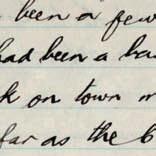 been a few
had been a ba
k on town m
far as the b